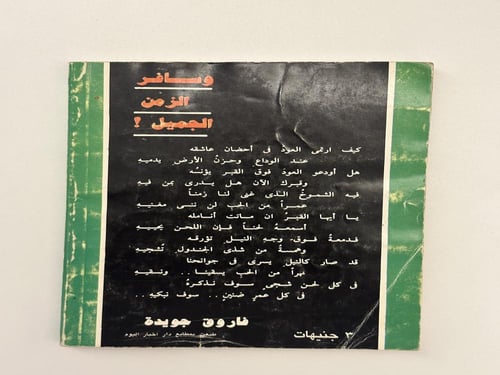 وسافر
الزمن
الجميل !
كيف ارتمى العود فى أحضان عاشقه
عند الوداع وحزن الأرض يدميه
هل أودعو العود فوق القبر يؤنسه
وقبرك الآن هل يدرى بمن فيه
فيه الشموخ الذى غنى لنا زمنا
عمرا من الحب لن ننسى مغنيه
يا أيها القبر ان ماتت أنامله
أسمعه لحنا فإن اللحن يحييه
قدمعة فوق وجه النيل تؤرقه
وهمسة من شذى الجندول تشجيه
قد صار كالنيل يسرى فى جوانحنا
نهرا من الحب يسقينا .. ونسقيه
فى كل لحن شجى سوف نذكره
فى كل عمر ضنين .. سوف نبكيه ..
فاروق جويدة
طبعت بمطابع دار اخبار اليوم
٣ جنيهات